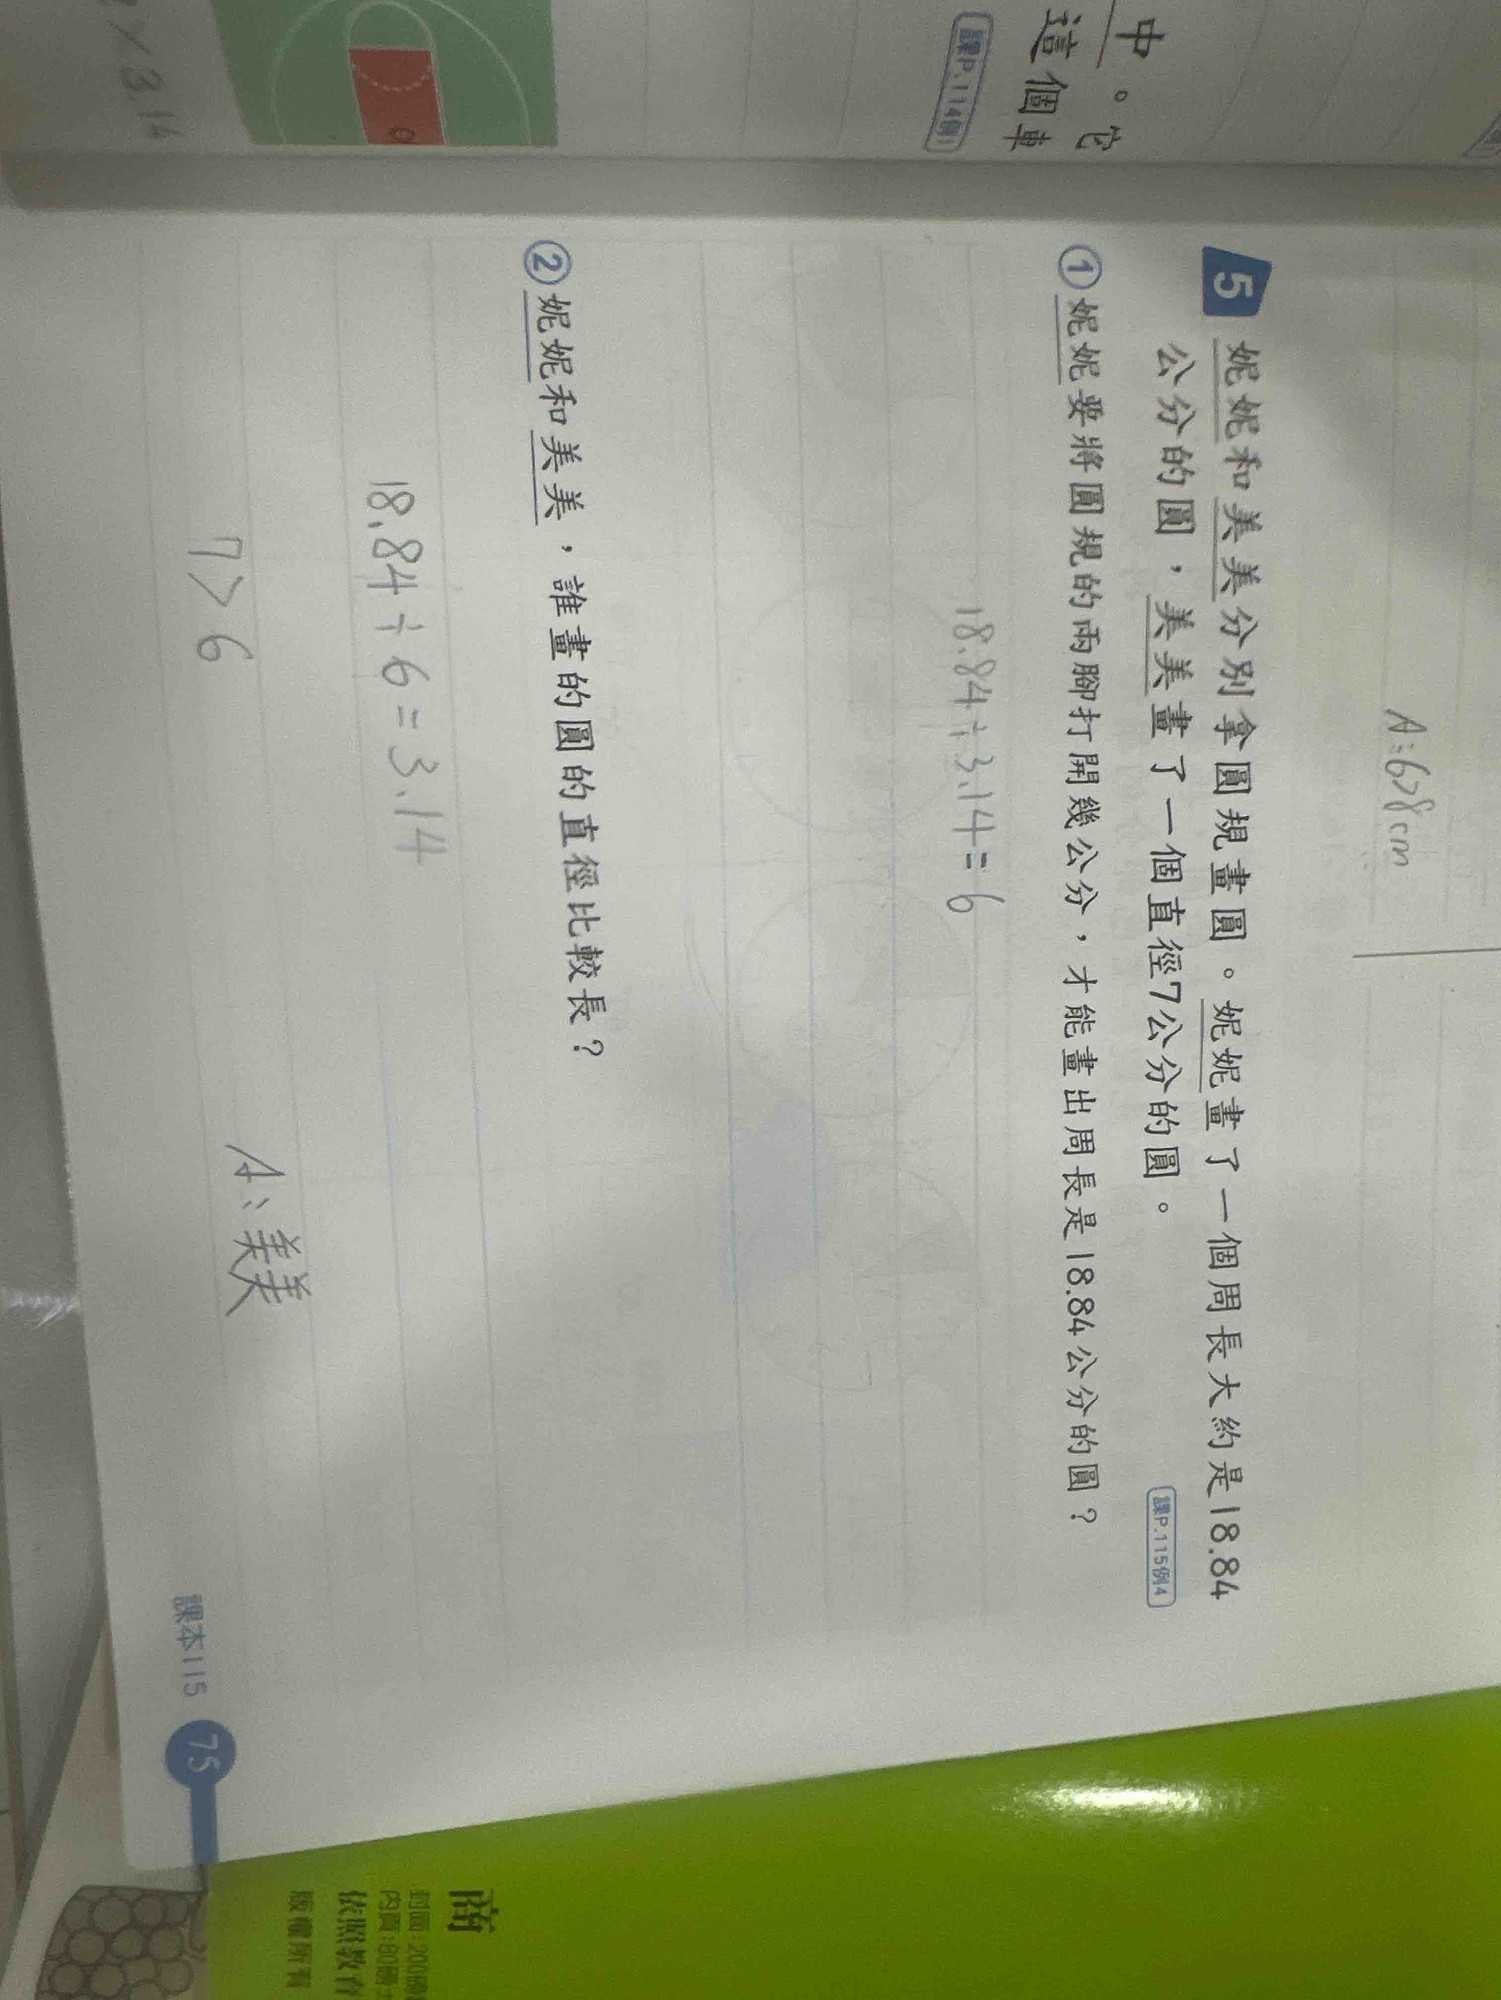 中。它
這個車
課P.114例1
2×3.14
A:6>8cm
5 妮妮和美美分別拿圓規畫圓。妮妮畫了一個周長大約是18.84
公分的圓，美美畫了一個直徑7公分的圓。
課P.115例4
①妮妮要將圓規的兩腳打開幾公分，才能畫出周長是18.84公分的圓？
18.84÷3.14=6
②妮妮和美美，誰畫的圓的直徑比較長？
18.84÷6=3.14
7>6
A:美美
課本115 75
商
依照教育
版權所有